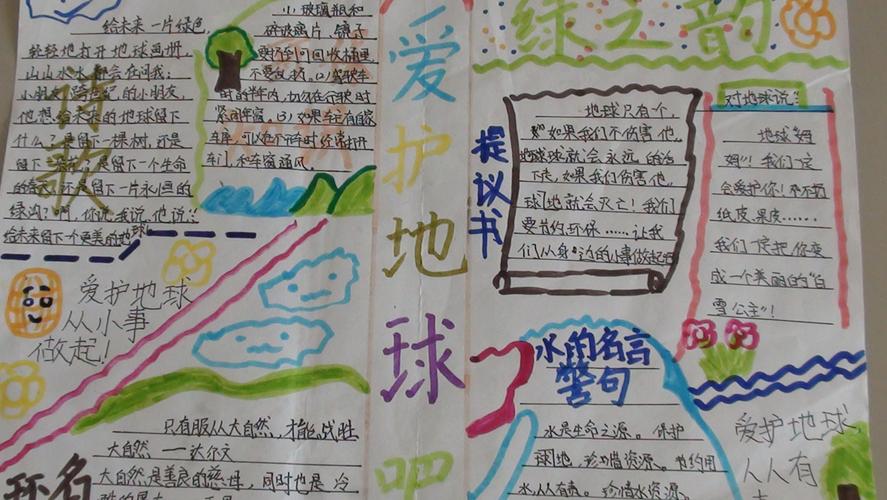 给未来一片绿色
轻轻地打开地球画册,
山山水水都会在问我:
小朋友,跨世纪的小朋友,
他想给未来的地球留下
什么?是留下一棵树,还是
留下一朵花,是留下一个生命
的 还是留下一片永恒的
绿洲?啊,你说我说他说:
给未来留下个更美的地球
诗歌
小玻璃瓶和
碎玻璃片 镜子
要 到可回收桶里
不要乱扔。(2)驾驶车
时的半内,切勿在行驶时
紧闭车窗。(3)如果车已有
车库,可以 不 时经常打开
车门和车窗通风。
爱护地球吧
绿之韵
提议书
地球只有个,
如果我们不伤害他,
地球就会永远的活
下去,如果我们伤害他,
球地就会灭亡!我们
要节约环保……让我
们从身边的小事做起吧
对地球说:
地球"姆
姆"!我们一定
会爱护你!不乱扔
纸皮、果皮……
我们一定把你变
成一个美丽的"白
雪公主"!
爱护地球
从小事
做起!
只有服从大自然,才能战胜
大自然 ——达尔文
大自然是善良的慈母,同时也是冷
环 名
水的名言
警句
水是生命之源。保护
球地,珍惜资源。节约用
水从人有责。珍惜水资源。
爱护地球,
人人有